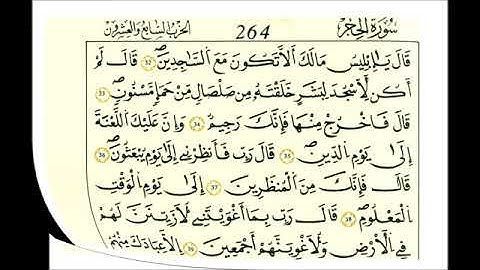 سُورَةُ الحِجْرِ 264 الحزب السابع والعشرون
قَالَ يَٰإِبْلِيسُ مَالَكَ أَلَّا تَكُونَ مَعَ ٱلسَّٰجِدِينَ 32 قَالَ لَمَ
أَكُن لِّأَسْجُدَ لِبَشَرٍ خَلَقْتَهُۥ مِن صَلْصَٰلٍ مِّنْ حَمَإٍ مَّسْنُونٍ 33
قَالَ فَٱخْرُجْ مِنْهَا فَإِنَّكَ رَجِيمٌ 34 وَإِنَّ عَلَيْكَ ٱللَّعْنَةَ
إِلَىٰ يَوْمِ ٱلدِّينِ 35 قَالَ رَبِّ فَأَنظِرْنِي إِلَىٰ يَوْمِ يُبْعَثُونَ 36
قَالَ فَإِنَّكَ مِنَ ٱلْمُنظَرِينَ 37 إِلَىٰ يَوْمِ ٱلْوَقْتِ
ٱلْمَعْلُومِ 38 قَالَ رَبِّ بِمَا أَغْوَيْتَنِي لَأُزَيِّنَنَّ لَهُمْ
فِي ٱلْأَرْضِ وَلَأُغْوِيَنَّهُمْ أَجْمَعِينَ 39 إِلَّا عِبَادَكَ مِنْهُمُ